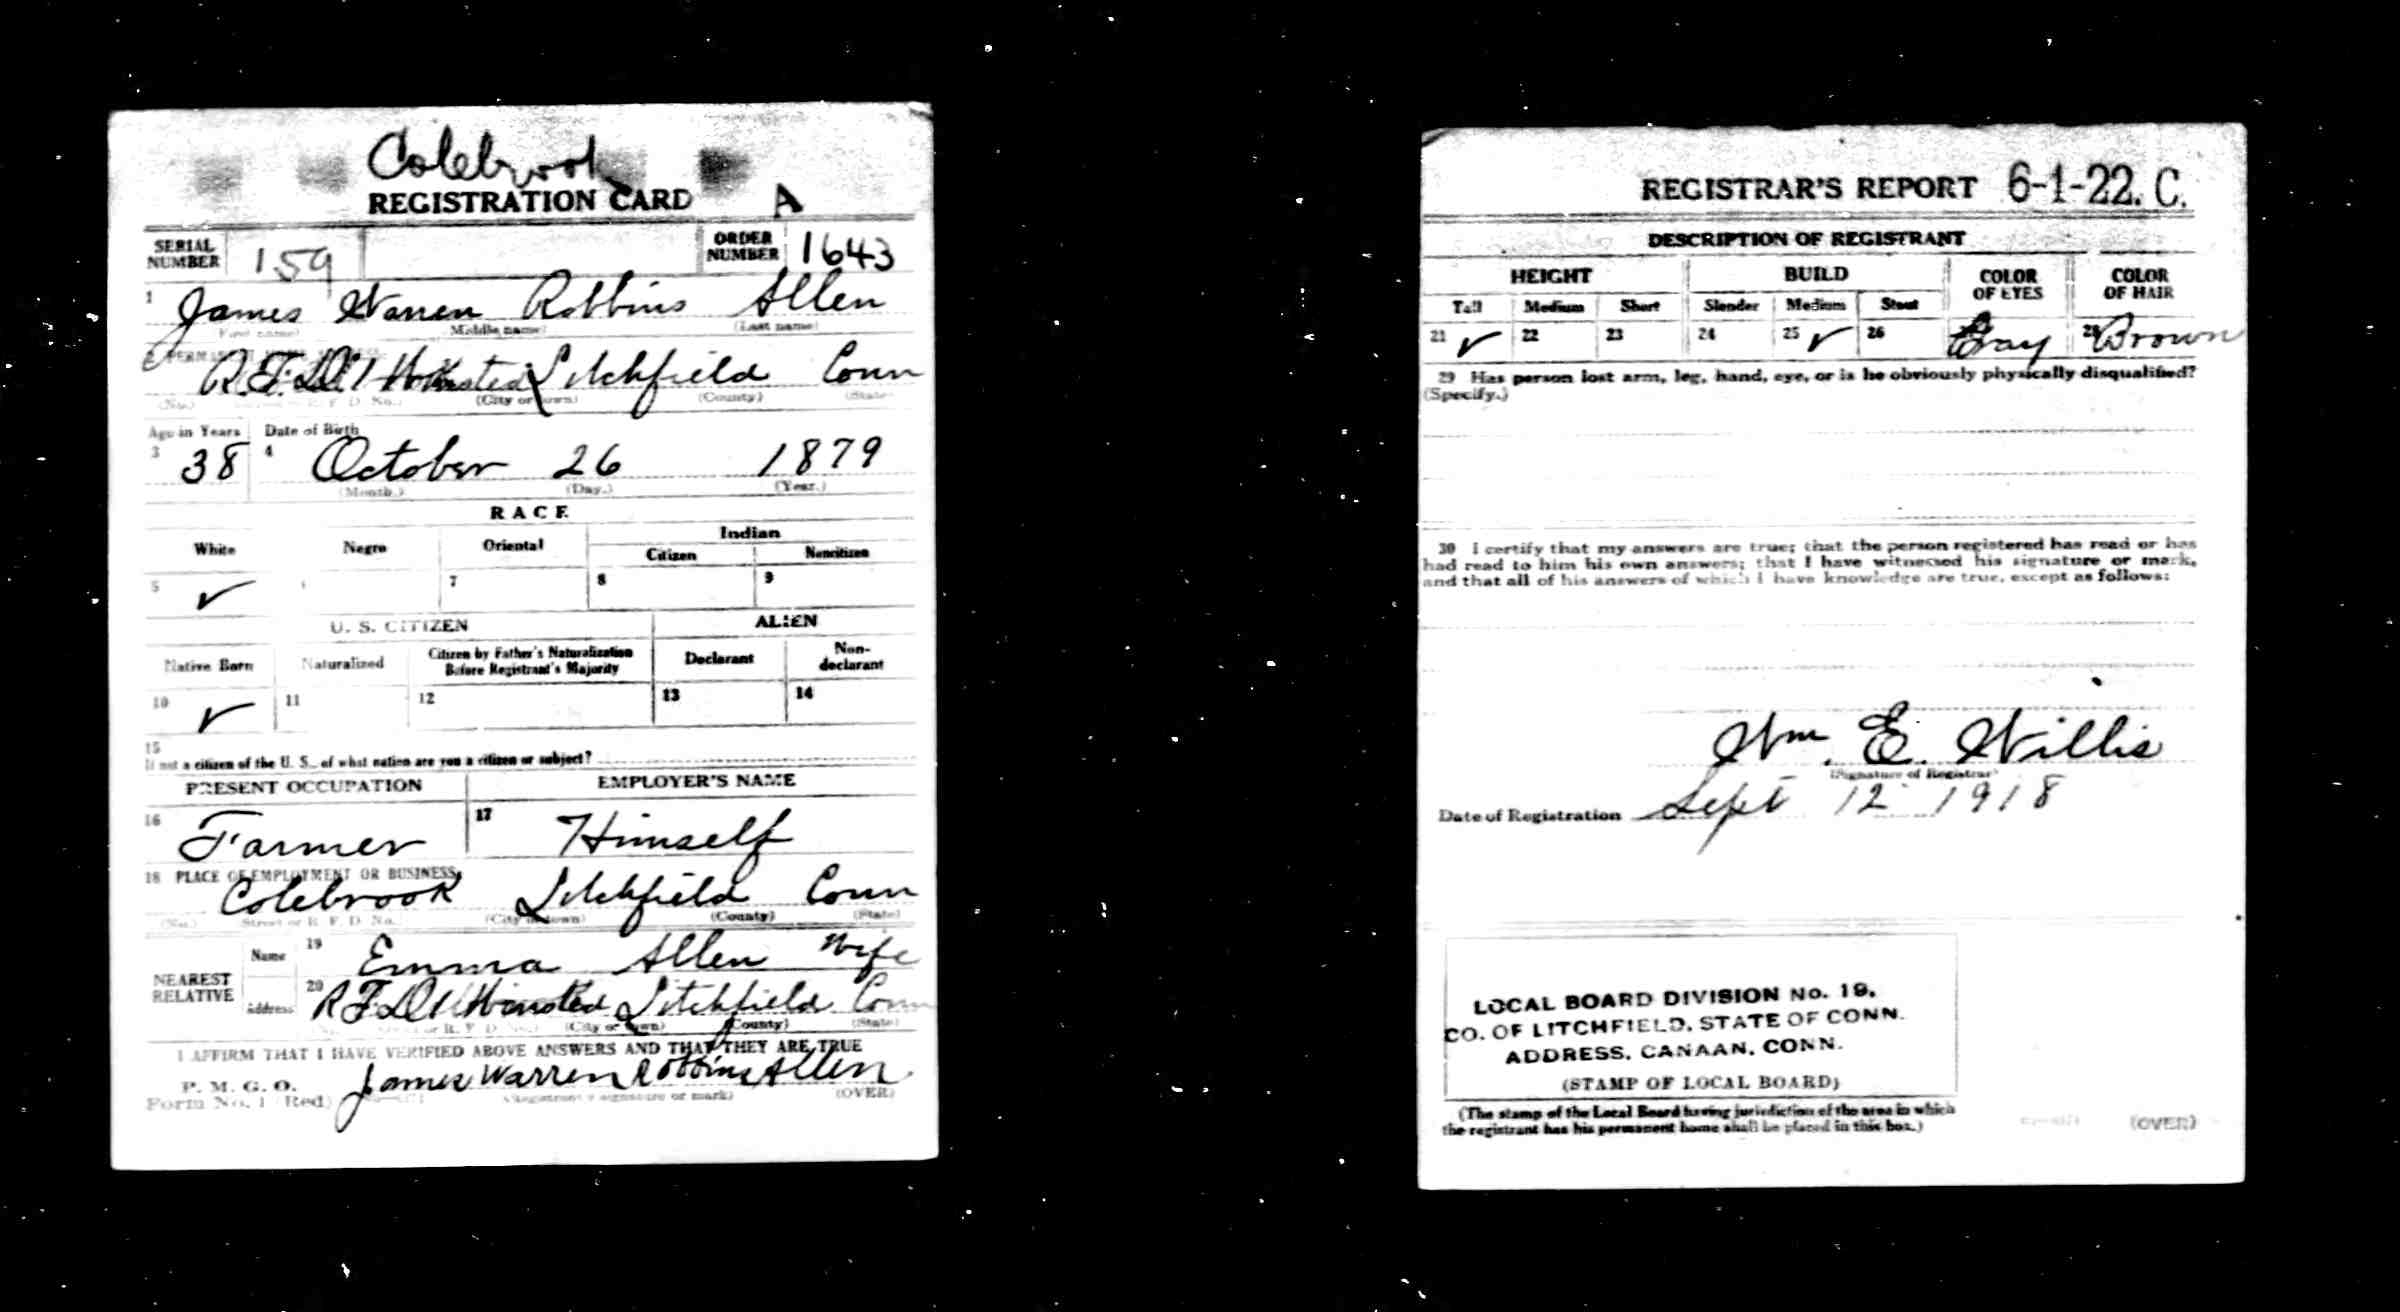 Colebrook
REGISTRATION CARD A
SERIAL NUMBER 159 ORDER NUMBER 1643
1 James Warren Robbins Allen
(First name) Middle name) (Last name)
2 PERMANENT HOME ADDRESS:
R.F.D. 1 Winsted Litchfield Conn
(No.) R. F. D. No.) (City or town) (County) (State)
Age in Years Date of Birth
3 38 4 October 26 1879
(Month.) (Day.) (Year.)
RACE
White Negro Oriental Indian
Citizen Noncitizen
5 ✓ 7 8 9
U. S. CITIZEN ALIEN
Native Born Naturalized Citizen by Father's Naturalization Before Registrant's Majority Declarant Non-declarant
10 ✓ 11 12 13 14
15
If not a citizen of the U. S., of what nation are you a citizen or subject?
PRESENT OCCUPATION EMPLOYER'S NAME
16 Farmer 17 Himself
18 PLACE OF EMPLOYMENT OR BUSINESS:
Colebrook Litchfield Conn
(No.) Street or R. F. D. No.) (City or town) (County) (State)
NEAREST RELATIVE Name 19 Emma Allen Wife
Address 20 R.F.D. 1 Winsted Litchfield Conn
(No.) Street or R. F. D. No.) (City or town) (County) (State)
I AFFIRM THAT I HAVE VERIFIED ABOVE ANSWERS AND THAT THEY ARE TRUE
P. M. G. O.
Form No. 1 (Red) James Warren Robbins Allen
(Registrant's signature or mark) (OVER)
REGISTRAR'S REPORT 6-1-22. C.
DESCRIPTION OF REGISTRANT
HEIGHT BUILD COLOR OF EYES COLOR OF HAIR
Tall Medium Short Slender Medium Stout
21 ✓ 22 23 24 25 ✓ 26 Gray 28 Brown
29 Has person lost arm, leg, hand, eye, or is he obviously physically disqualified?
(Specify.)
30 I certify that my answers are true; that the person registered has read or has
had read to him his own answers; that I have witnessed his signature or mark,
and that all of his answers of which I have knowledge are true, except as follows:
Wm. E. Willis
(Signature of Registrar)
Date of Registration Sept 12 1918
LOCAL BOARD DIVISION No. 19,
CO. OF LITCHFIELD, STATE OF CONN.
ADDRESS, CANAAN, CONN.
(STAMP OF LOCAL BOARD)
(The stamp of the Local Board having jurisdiction of the area in which
the registrant has his permanent home shall be placed in this box.)
(OVER)